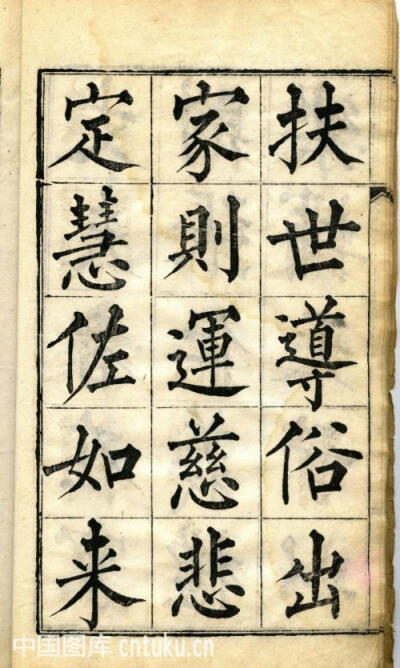 扶世導俗出
家則運慈悲
定慧佐如来
中国图库 cntuku.cn